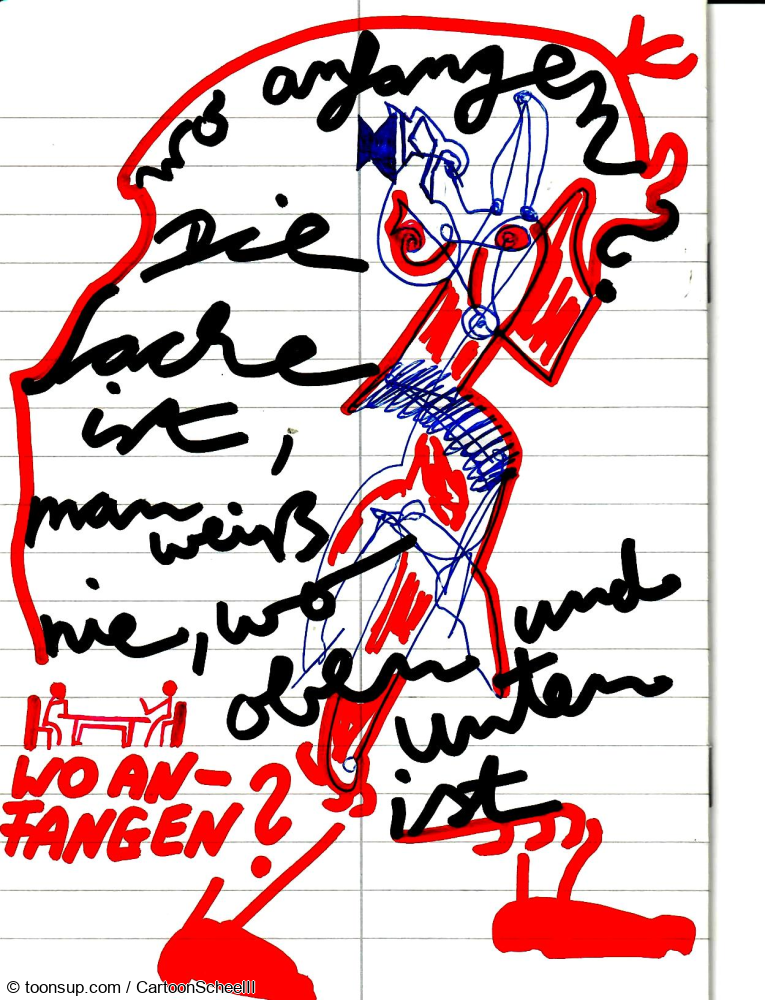 wo anfangen?
Die
Sache
ist,
man
weiß
nie, wo
oben und
unten
ist
WO AN-
FANGEN?
© toonsup.com / CartoonScheelll